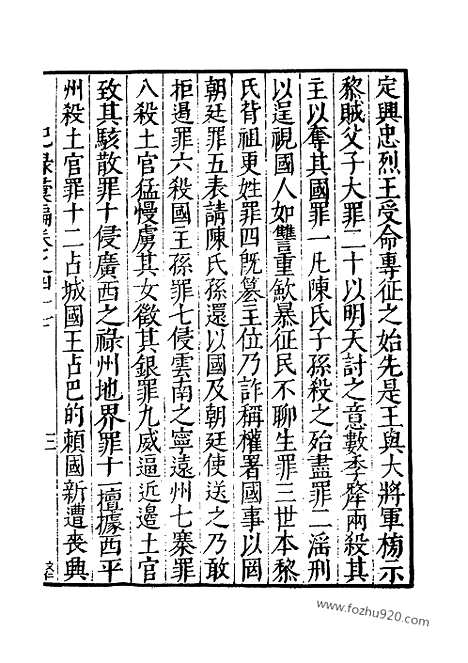 定興忠烈王受命專征之始先是王與大將軍榜示
黎賊父子大罪二十以明天討之意數季犛兩殺其
主以奪其國罪一凡陳氏子孫殺之殆盡罪二淫刑
以逞視國人如讐重歛暴征民不聊生罪三世本黎
氏背祖更姓罪四旣簒王位乃詐稱權署國事以罔
朝廷罪五表請陳氏孫還以國及朝廷使送之乃敢
拒遏罪六殺國主孫罪七侵雲南之寧遠州七寨罪
八殺土官猛慢虜其女徵其銀罪九威逼近邊土官
致其駭散罪十侵廣西之祿州地界罪十一擅據西平
州殺土官罪十二占城國王占巴的賴國新遭喪興
紀錄彙編卷之四十七
三
www.fozhu920.com